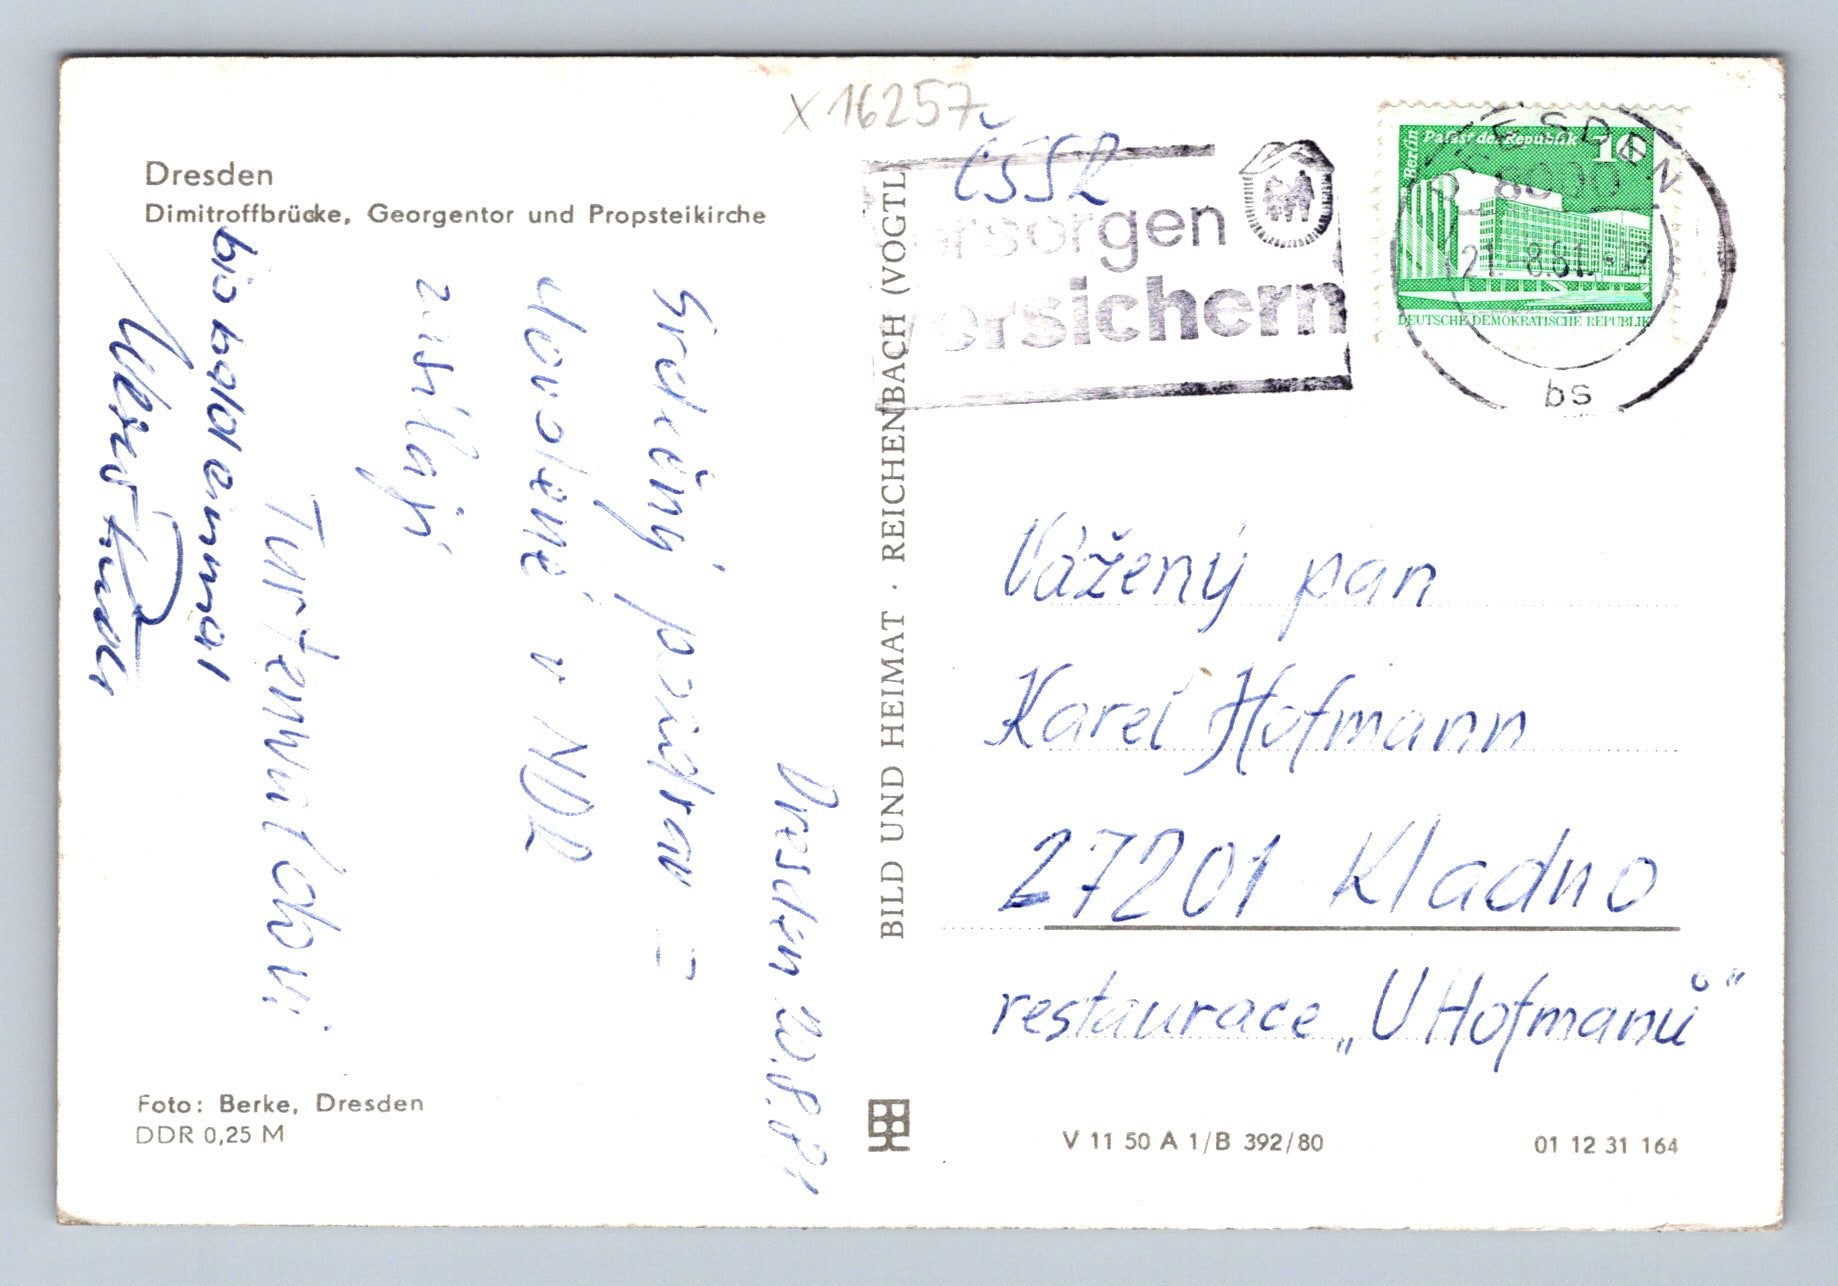 x 16257
Dresden
Dimitroffbrücke, Georgentor und Propsteikirche
Dresden 20.8.81
Srdečný pozdrav z
dovolené v NDR
zasílají
bis bald einmal
Foto: Berke, Dresden
DDR 0,25 M
BILD UND HEIMAT · REICHENBACH (VOGTL
ČSSR
versichern
Berlin
Palast der Republik
10
DEUTSCHE DEMOKRATISCHE REPUBLIK
DRESDEN
8090
21.-8.81
bs
Vážený pan
Karel Hofmann
27201 Kladno
restaurace „U Hofmanů"
V 11 50 A 1/B 392/80
01 12 31 164